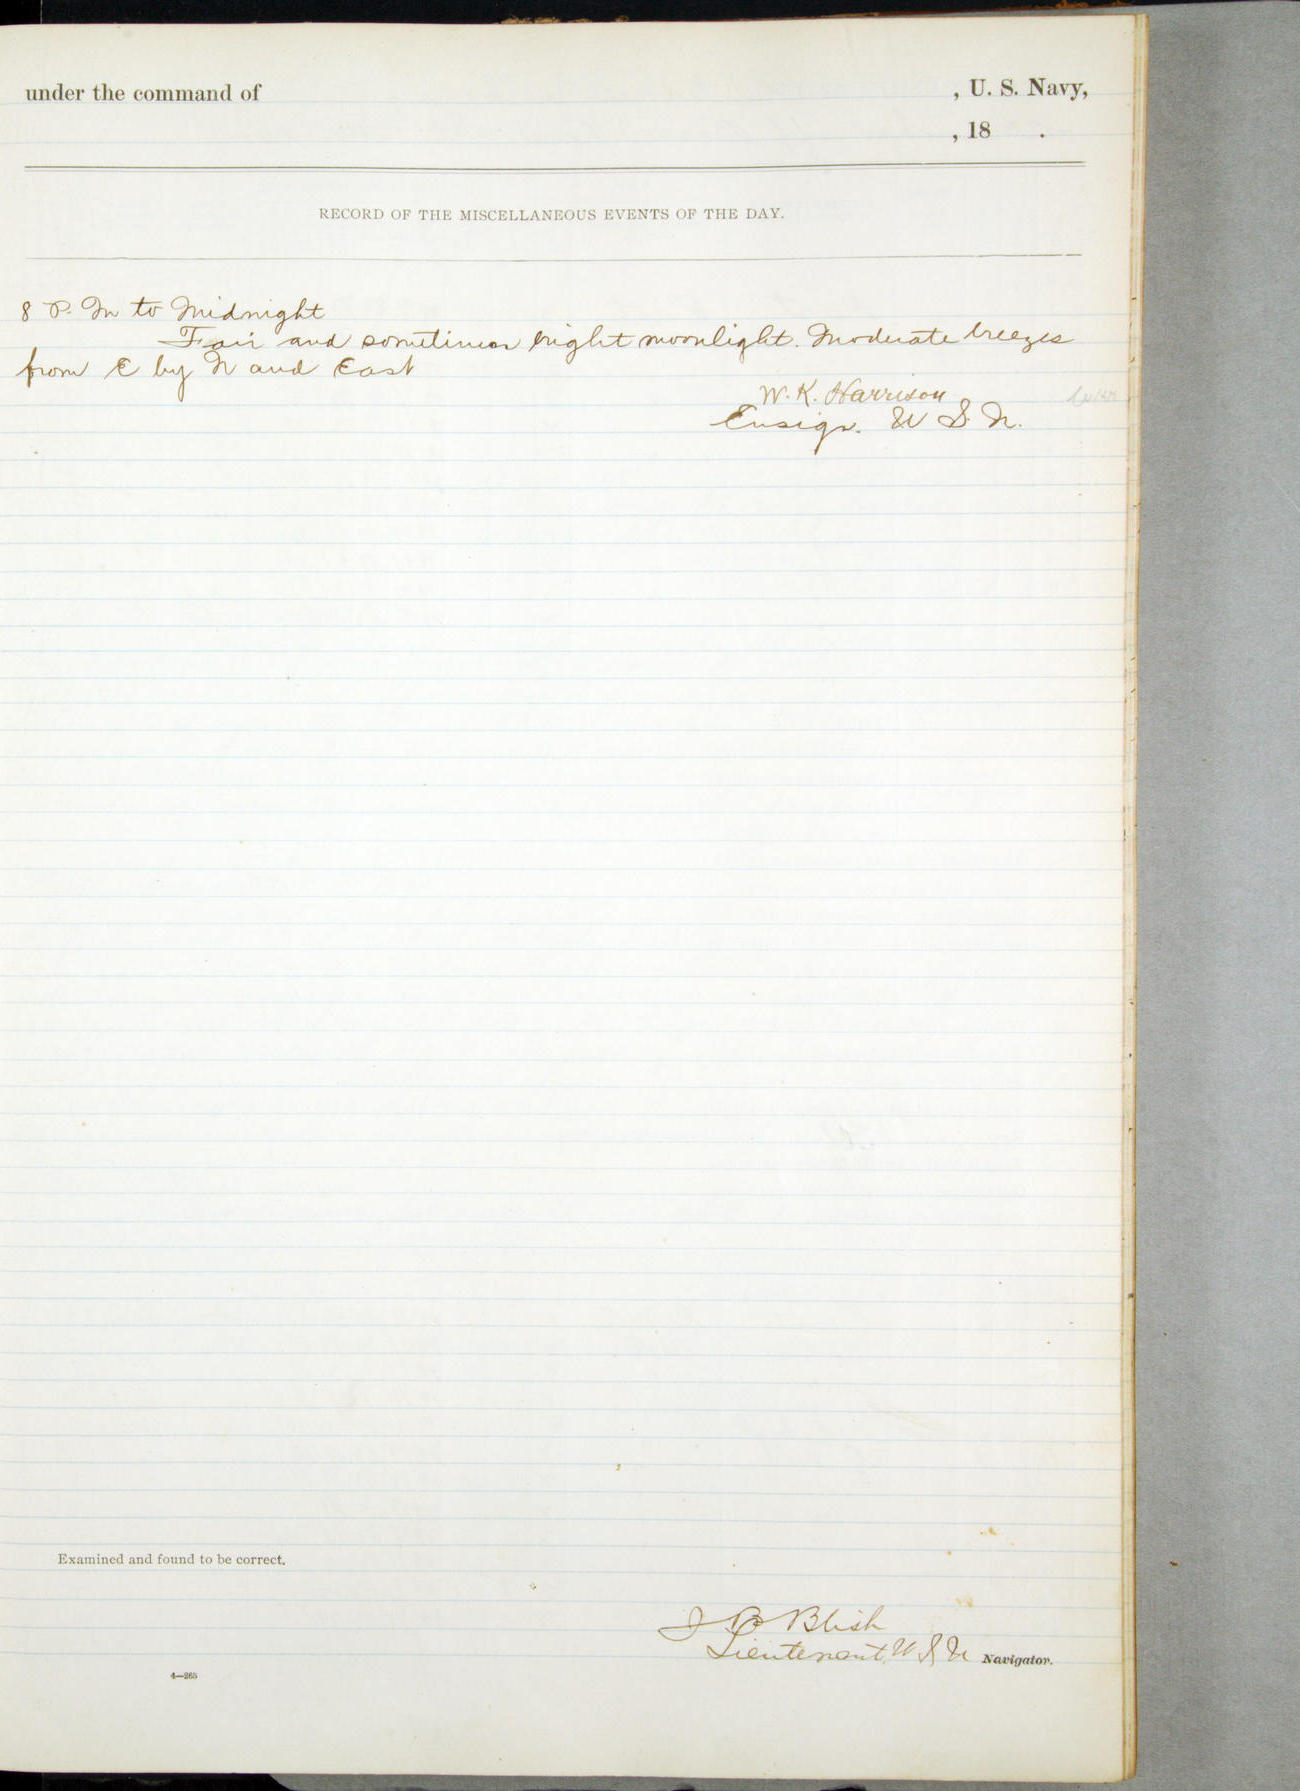 under the command of , U. S. Navy,
, 18 .
RECORD OF THE MISCELLANEOUS EVENTS OF THE DAY.
8 P. M to Midnight
Fair and sometimes bright moonlight. Moderate breezes
from E by N and East
W. K. Harrison
Ensign. U S. N.
Examined and found to be correct.
J B Blish
Lieutenant, U S N Navigator.
4—265